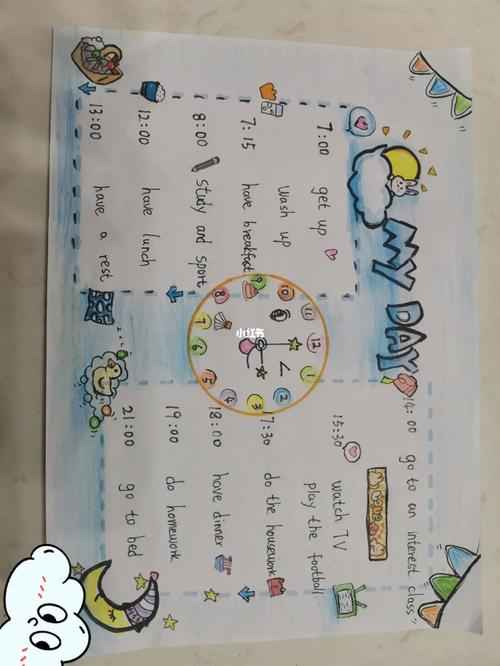 MY DAY
7:00 get up
wash up
7:15 have breakfast
8:00 study and sport
12:00 have lunch
13:00 have a rest
12
1
2
3
4
5
6
7
8
9
10
11
小红书
14:00 go to an interest class
15:30 watch TV
play the football
17:30 do the housework
18:00 have dinner
19:00 do homework
21:00 go to bed